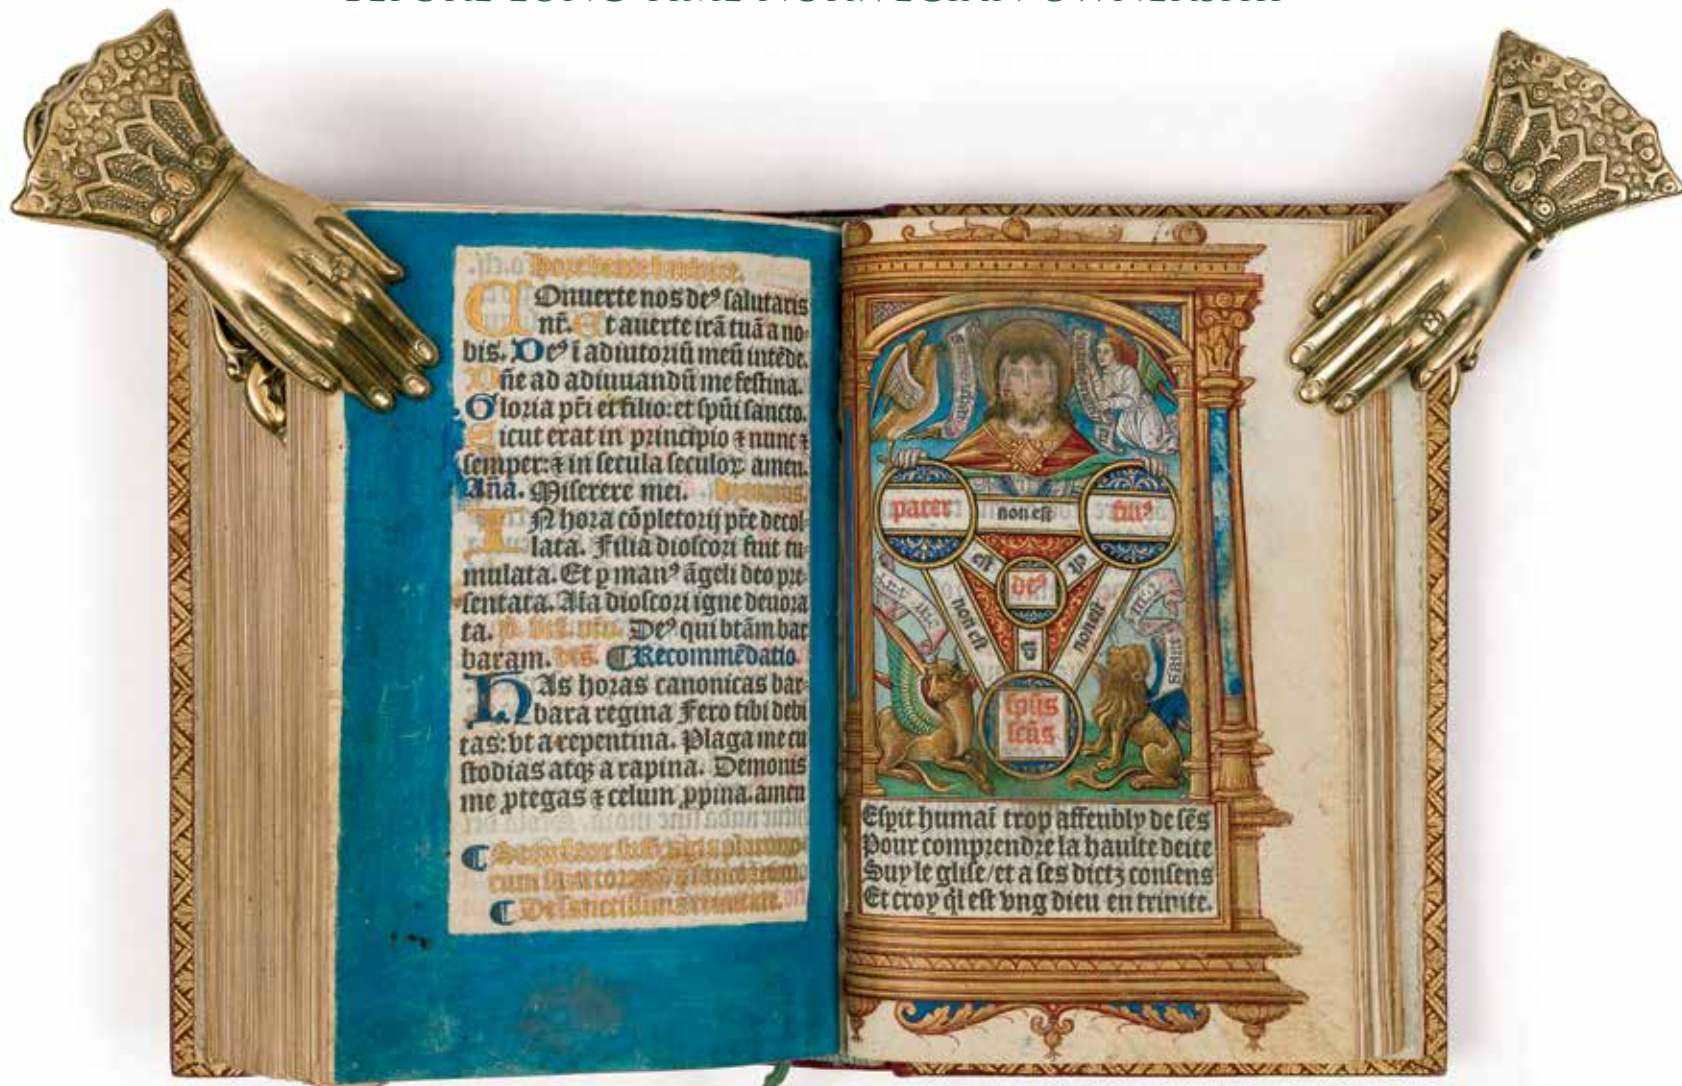 BEFORE LONG-TIME NORWEGIAN OWNERSHIP
COnuerte nos deꝰ salutaris
nr̄. Et auerte irā tuā a no-
bis. Deꝰ ī adiutoriū meū intēde.
Dn̄e ad adiuuandū me festina.
Gloria pr̄i et filio: et spūi sancto.
Sicut erat in principio ⁊ nunc ⁊
semper: ⁊ in secula seculoꝝ amen.
Aña. Miserere mei.
IN hora cōpletorij pr̄e decol-
lata. Filia dioscori fuit tu-
mulata. Et ꝑ manꝰ āgeli deo pre-
sentata. Ala dioscori igne deuora
ta. Deꝰ qui btām bar
baram. ¶ Recommēdatio.
HAs horas canonicas bar-
bara regina Fero tibi debi
tas: vt a repentina. Plaga me cu
stodias atqꝫ a rapina. Demonis
me ꝓtegas ⁊ celum ꝓpina. amen
pater non est filiꝰ
est deꝰ
non est est non est
spūs
scūs
Espit humaī trop affeubly de sēs
Pour comprendre la haulte deite
Suy le glise/et a ses dictz consens
Et croy qī est vng dieu en trinite.